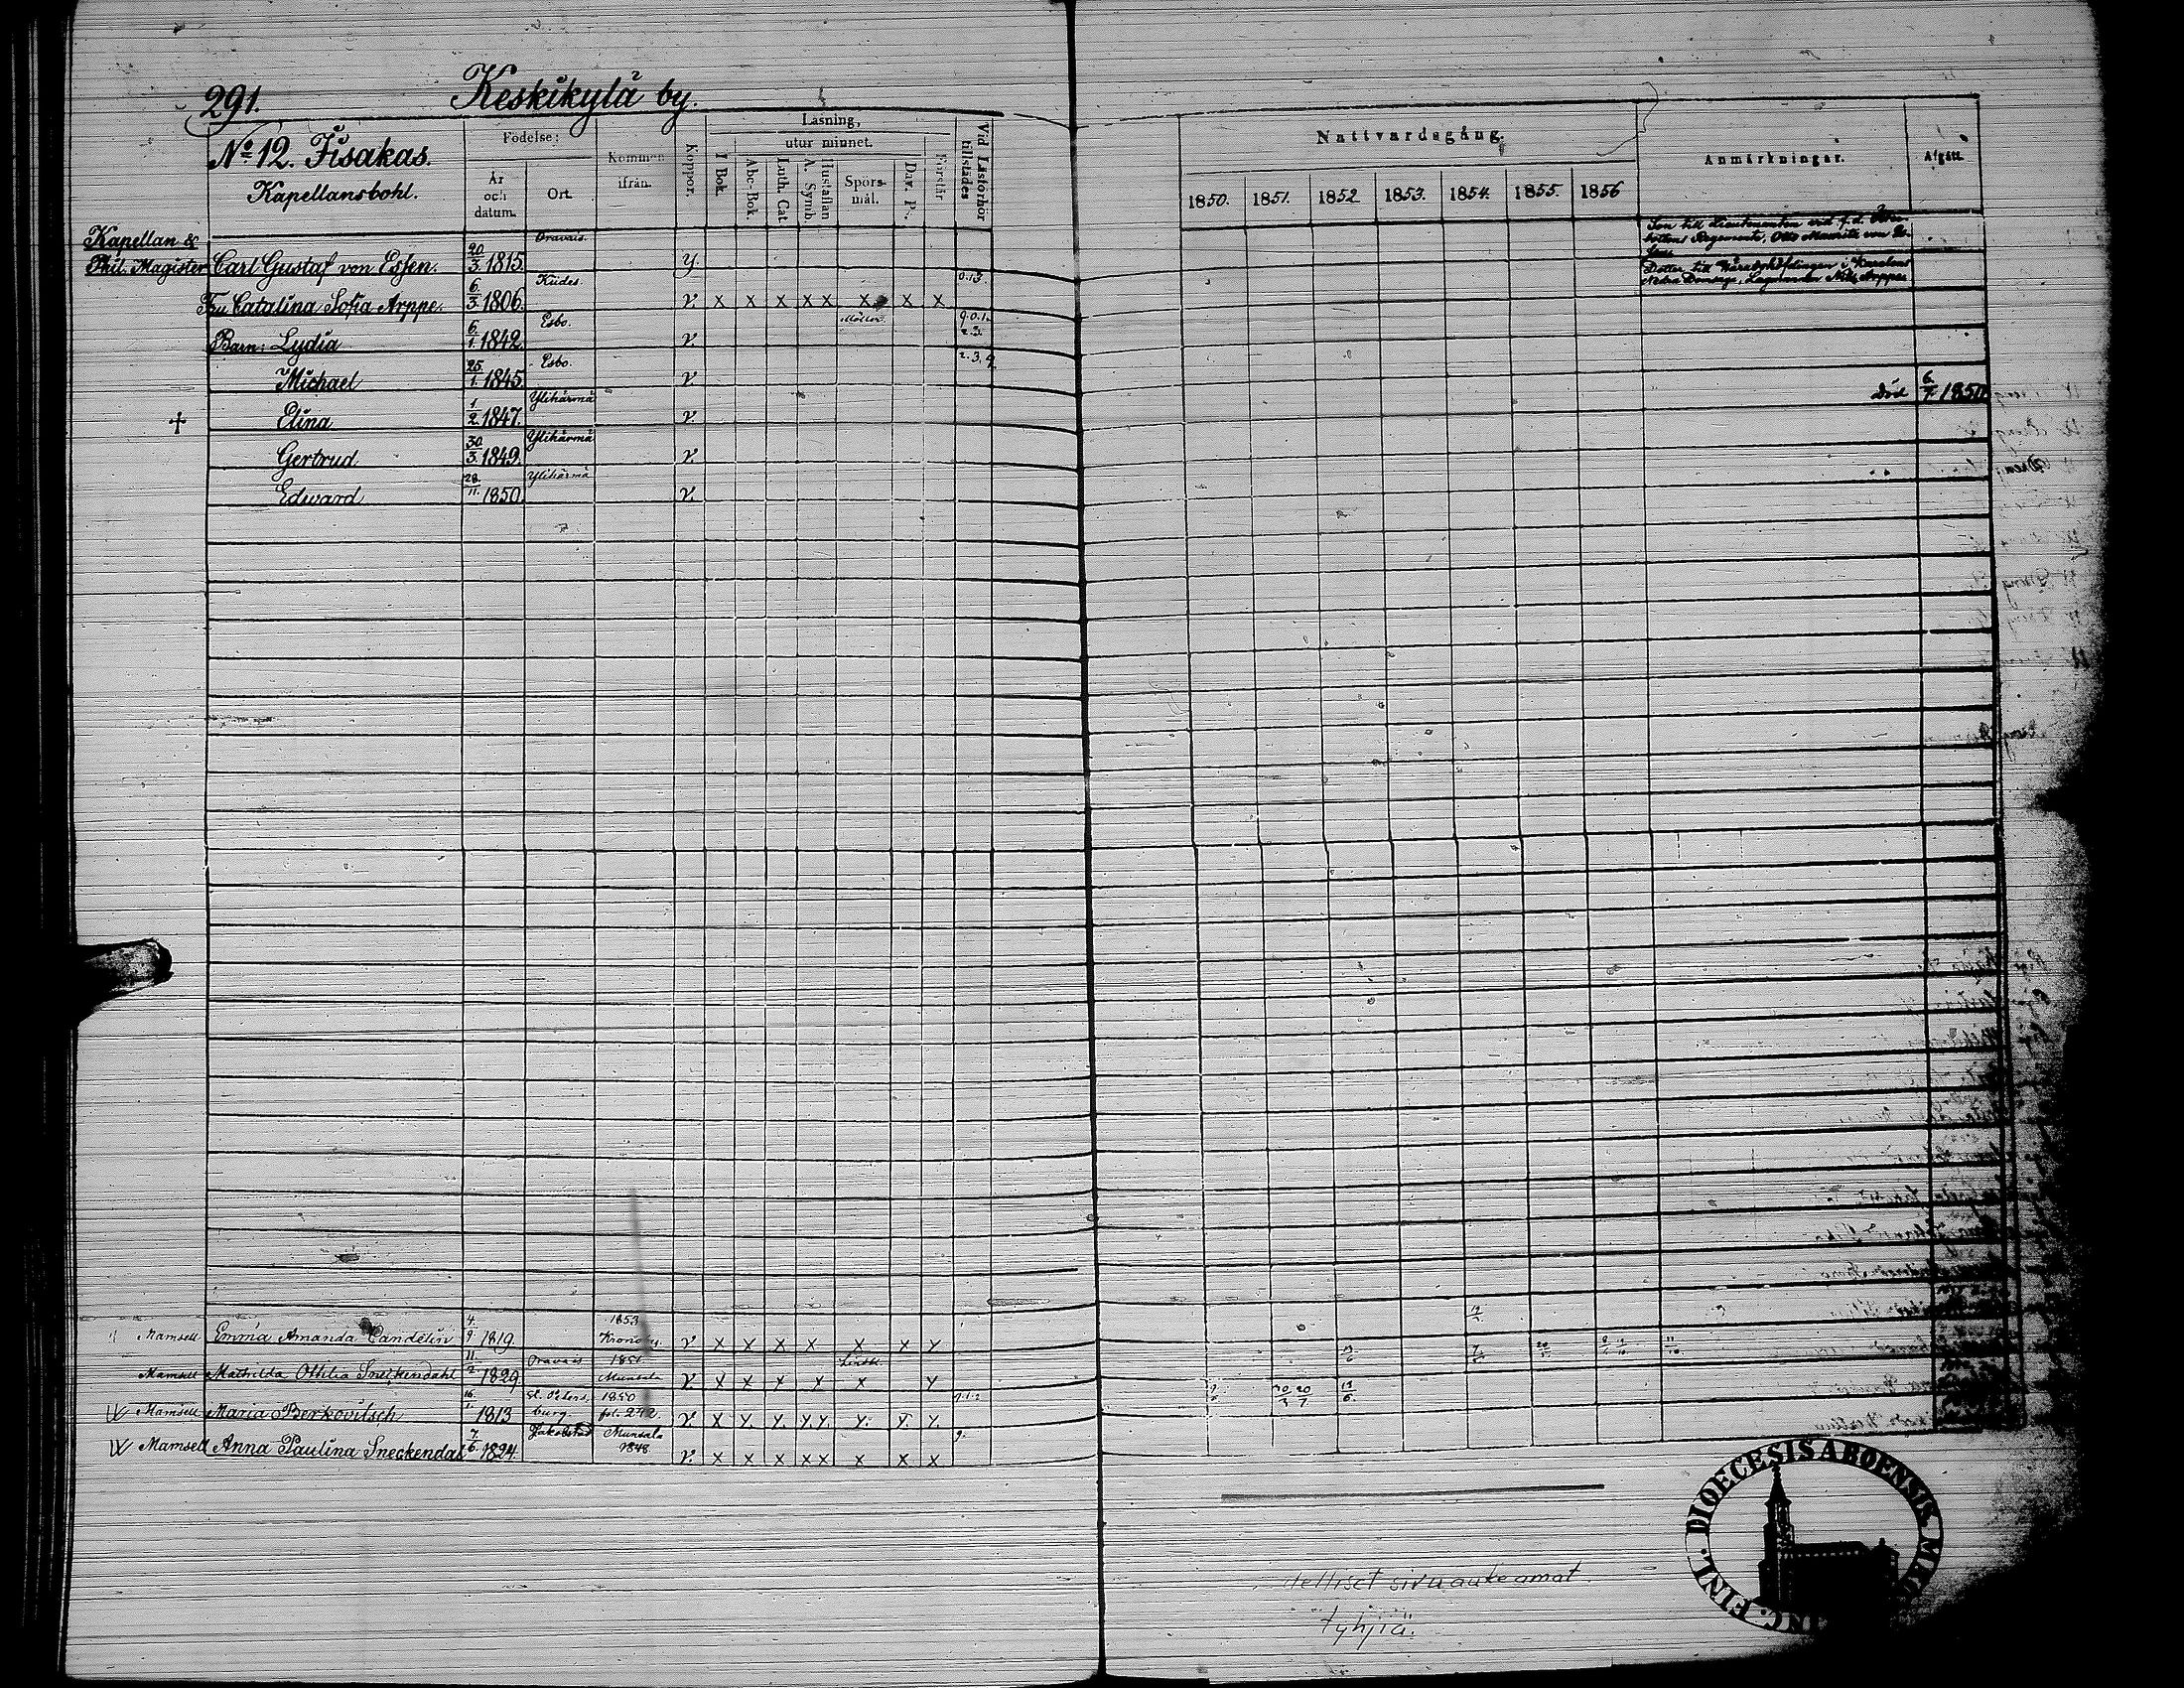 291. Keskikylä by.
No 12. Fisakas.
Kapellansbohl.
Födelse:
År och datum.
Ort.
Kommen ifrån.
Koppor.
Läsning,
utur minnet.
I Bok.
Abc-Bok.
Luth. Cat.
Hustaflan
A. Symb.
Spörsmål.
Dav. Ps.
Vid Läsförhör tillstädes
Nattvardsgång.
1850. 1851. 1852 1853. 1854. 1855. 1856
Anmärkningar.
Afgått.
Kapellan &
Phil. Magister Carl Gustaf von Essen. 20/3 1815. Oravais. Son till Lieutenanten vid f.d. Öster-
bottens Regemente, Otto Mauritz von Es-
sen.
Fru Catalina Sofia Arppe. 6/3 1806. Kides. v. x x x x x x x x 0.1.3. Dotter till Häradshöfdingen i Karelens
Nedra Domsaga, Lagmannen Nils Arppe.
Barn: Lydia 6/1 1842. Esbo. v. 9.0.1. 2.3.
Michael 25/1. 1845. Esbo. v. 2.3.4
+ Elina 1/2. 1847. Ylihärmä v. död 6/7. 1850
Gertrud 30/3. 1849. Ylihärmä v.
Edward 28/11. 1850. Ylihärmä v.
Mamsell Emma Amanda Candelin 4/9 1819. 1853 v. x x x x x x x
Mamsell Mathilda Othilia Sneckendahl 11/2 1829. Oravais Munsala v. x x x x x x
Mamsell Maria Berkovitsch 16/1 1813 St. Petersburg 1850 fol. 242. v. x x. x. x x. x. x. x. 9.1.2
Mamsell Anna Paulina Sneckendal 7/6 1824. Jakobstad Munsala 1848 v. x x x x x x x x 9.
sivuaukeamat
tyhjiä.
DIOECESIS ABOENSIS FINL.